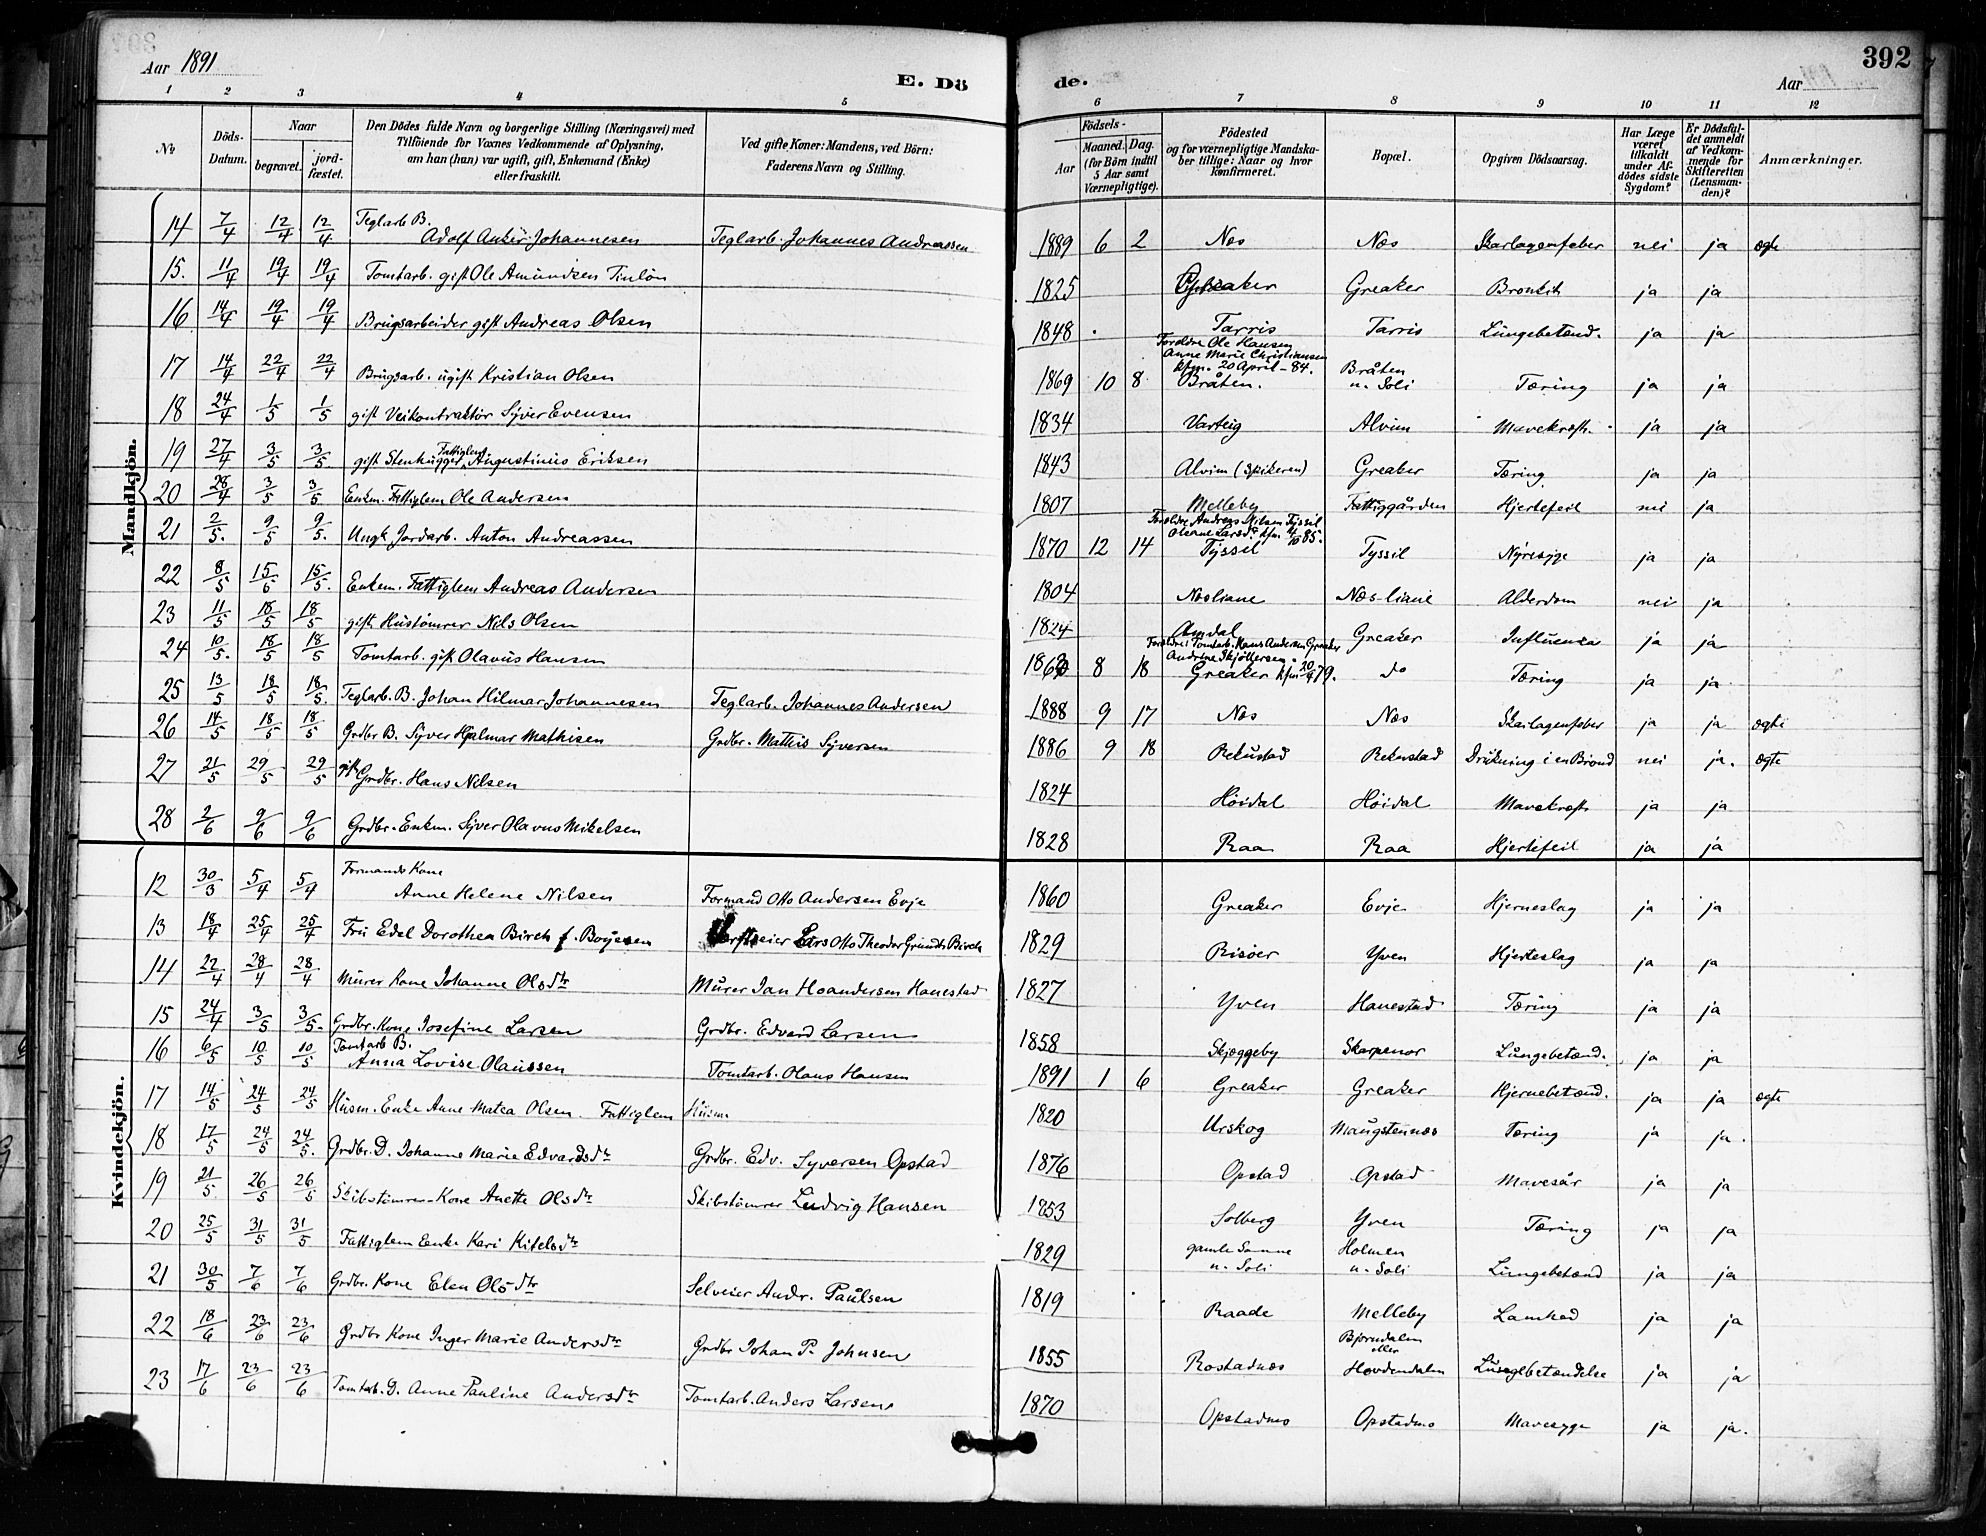 392
Aar 1891
E. Dö de.
Aar
1 2 3 4 5 6 7 8 9 10 11 12
№
Döds-Datum.
Naar
begravet.
jord-fæstet.
Den Dödes fulde Navn og borgerlige Stilling (Næringsvei) med
Tilföiende for Voxnes Vedkommende af Oplysning,
om han (hun) var ugift, gift, Enkemand (Enke)
eller fraskilt.
Ved gifte Koner: Mandens, ved Börn:
Faderens Navn og Stilling.
Födsels-
Aar
Maaned. Dag.
(for Börn indtil
5 Aar samt
Værnepligtige).
Födested
og for værnepligtige Mandska-
ber tillige: Naar og hvor
konfirmeret.
Bopæl.
Opgiven Dödsaarsag.
Har Læge
været
tilkaldt
under Af-
dödes sidste
Sygdom?
Er Dödsfal-
det anmeldt
af Vedkom-
mende for
Skifteretten
(Lensman-
den)?
Anmærkninger.
Mandkjön.
14 7/4 12/4 12/4 Teglarb B. Adolf Anker Johannesen Teglarb. Johannes Andreassen 1889 6 2 Næs Næs Skarlagensfeber nei ja ægte
15. 11/4 19/4 19/4 Tomtarb. gift Ole Amundsen 1825 Greaker Greaker Bronkit ja ja
16 14/4 19/4 19/4 Brugsarbeider gift Andreas Olsen 1848 Tarris Tarris Lungebetænd. ja ja
17 14/4 22/4 22/4 Brugsarb. ugift Kristian Olsen 1869 10 8 Forældre Ole Hansen Anne Marie Christiansen kfm. 20 April - 84. Bråten. Bråten u. Soli Tæring ja ja
18 24/4 1/5 1/5 gift Veikontraktør Syver Evensen 1834 Varteig Alvim Mavekræft. ja ja
19 27/4 3/5 3/5 gift Stenhugger Fattiglem Augustinus Eriksen 1843 Alvim (Spikeren) Greaker Tæring ja ja
20 28/4 3/5 3/5 Enkm. Fattiglem Ole Andersen 1807 Melleby Fattiggården Hjertefeil nei ja
21 2/5. 9/5 9/5. Ungk Jordarb. Anton Andreassen 1870 12 14 Forældre Andreas Nilsen Tyssil Oleane Larsd. kfm 4/10 85. Tyssil Tyssil Nyresyge ja ja
22 8/5 15/6 15/5. Enkem. Fattiglem Andreas Andersen 1804 Næsliane Næs-liane Alderdom nei ja
23 11/5 18/5 18/5 gift Hustømrer Nils Olsen 1824 Omdal Greaker Influensa ja ja
24 10/5. 18/5 18/5 Tomtarb. gift Olavus Hansen 8 18 Forældre: Tomtarb. Hans Andersen Greaker Greaker kfm 20/4 79. do Tæring ja ja
25 13/5 18/5 18/5. Teglarb. B. Johan Hilmar Johannesen Teglarb. Johannes Andersen 1888 9 17 Næs Næs Skarlagensfeber ja ja ægte
26 14/5 18/5 18/5 Grdbr B. Syver Hjalmar Mathisen Grdbr. Mathis Syversen 1886 9 18 Rekustad Rekustad Drukning i en Brønd nei ja. ægte
27 21/5 29/5 29/5 gift Grdbr. Hans Nilsen 1824 Høidal Høidal Mavekræft ja ja
28 2/6 9/6 9/6 Grdbr. Enkm. Syver Olavus Mikelsen 1828 Raa Raa Hjertefeil ja ja
Kvindekjön.
12 30/3 5/4 5/4 Formands Kone Anne Helene Nilsen Formand Otto Andersen Evje 1860 Greaker Evje Hjerneslag ja ja
13 18/4 25/4 25/4 Fru Edel Dorothea Birch f. Boyesen Lars Otto Theodor Grundt Birch 1829 Risøer Yven Hjerteslag ja ja
14 22/4 28/4 28/4 Murer Kone Johanne Olsdtr Murer Jan Hoandersen Hanestad 1827 Yven Hanestad Tæring ja ja
15 24/4 3/5 3/5. Grdbr. Kone Josefine Larsen Grdbr. Edvard Larsen 1858 Skjeggeby Skarpenor Lungebetænd. ja ja
16 6/5 10/5 10/5 Tomtarb B. Anna Lovise Olaussen Tomtarb. Olaus Hansen 1891 1 6 Greaker Greaker Hjernebetænd. ja ja ægte
17 14/5 24/5 24/5 Husm. Enke Anne Matea Olsen. Fattiglem Husm 1820 Urskog Maugstennæs Tæring ja ja.
18 17/5 24/5 24/5. Grdbr. D. Johanne Marie Edvardsdtr Grdbr. Edv. Syversen Opstad 1876 Opstad Opstad Mavesår ja ja
19 21/5 26/5 26/5 Skibstømrer-Kone Anette Olsdtr Skibstømrer Ludvig Hansen 1853 Solberg Yven Tæring ja ja
20 25/5 31/5 31/5 Fattiglem Enke Kari Kitelsdtr 1829 gamle u. Soli Holmen u. Soli Lungebetænd ja ja
21 30/5 7/6 7/6 Grdbr. Kone Elen Olsdtr Selveier Andr. Paulsen 1819 Raade Melleby Lamhed ja ja
22 18/6 23/6 23/6 Grdbr Kone Inger Marie Andersdtr Grdbr Johan P. Johnsen 1855 Rostadnæs Bjørndalen eller Hovdendalen Lungebetændelse ja ja
23 17/6 23/6 23/6 Tomtarb. D. Anne Pauline Andersdtr Tomtarb. Anders Larsen 1870 Opstadmo Opstadmo Mavesyge ja ja.